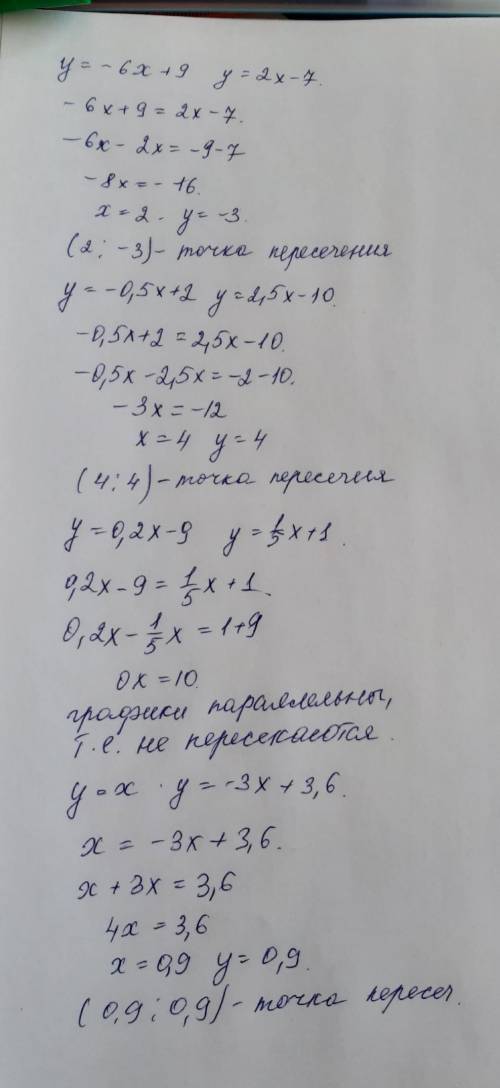 y = -6x+9 y = 2x-7.
-6x+9 = 2x-7.
-6x-2x = -9-7
-8x = -16.
x = 2. y = -3.
(2; -3) - точка пересечения
y = -0,5x+2 y = 2,5x-10.
-0,5x+2 = 2,5x-10.
-0,5x-2,5x = -2-10.
-3x = -12
x = 4 y = 4
(4; 4) - точка пересечия
y = 0,2x-9 y = 1/5x+1.
0,2x-9 = 1/5x+1.
0,2x-1/5x = 1+9
0x = 10.
графики параллельны,
т.е. не пересекаются.
y = x . y = -3x+3,6.
x = -3x+3,6.
x+3x = 3,6
4x = 3,6
x = 0,9 y = 0,9.
(0,9; 0,9) - точка пересеч.